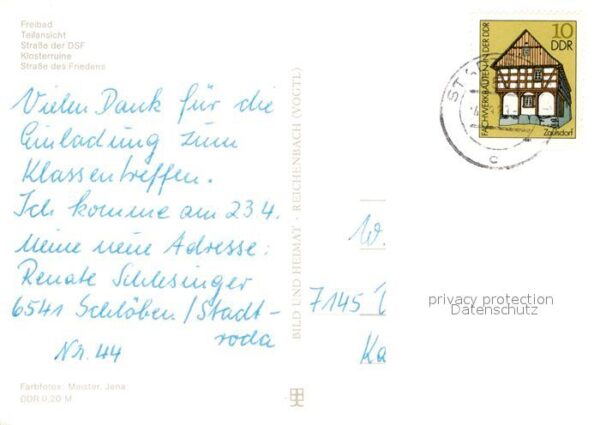 Freibad
Teilansicht
Straße der DSF
Klosterruine
Straße des Friedens
Vielen Dank für die
Einladung zum
Klassentreffen.
Ich komme am 23 4.
Meine neue Adresse:
Renate Schlesinger
6541 Schlöben/Stadt-
roda
Nr. 44
Farbfotos: Meister, Jena
DDR 0,20 M
BILD UND HEIMAT · REICHENBACH (VOGTL)
10
DDR
FACHWERKBAUTEN IN DER DDR
Zaulsdorf
W.
7145
Ka
privacy protection
Datenschutz